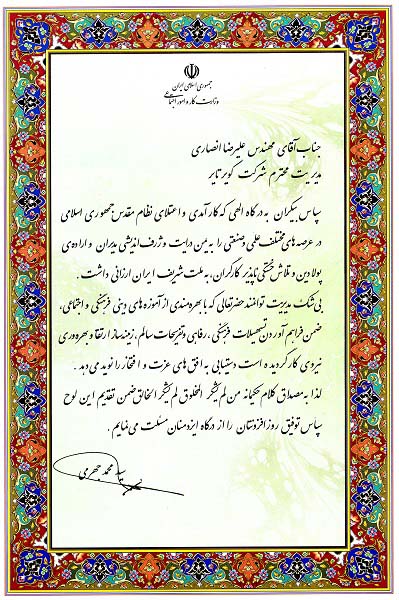 جمهوری اسلامی ایران
وزارت کار و امور اجتماعی
جناب آقای مهندس علیرضا انصاری
مدیریت محترم شرکت کویر تایر
سپاس بیکران به درگاه الهی که کارآمدی و اعتلای نظام مقدس جمهوری اسلامی
در عرصه‌های مختلف علمی و صنعتی را به یمن درایت و ژرف اندیشی مدیران و اراده‌ی
پولادین و تلاش خستگی ناپذیر کارگران، به ملت شریف ایران ارزانی داشت.
بی‌شک مدیریت توانمند حضرتعالی که با بهره‌مندی از آموزه‌های دینی فرهنگی و اجتماعی،
ضمن فراهم آوردن تسهیلات فرهنگی، رفاهی و تفریحات سالم، زمینه‌ساز ارتقا و بهره‌وری
نیروی کار گردیده است دستیابی به افق‌های عزت و افتخار را نوید می‌دهد.
لذا به مصداق کلام حکیمانه من لم یشکر المخلوق لم یشکر الخالق ضمن تقدیم این لوح
سپاس توفیق روزافزونتان را از درگاه ایزد منان مسئلت می‌نمایم.
سید محمد جهرمی